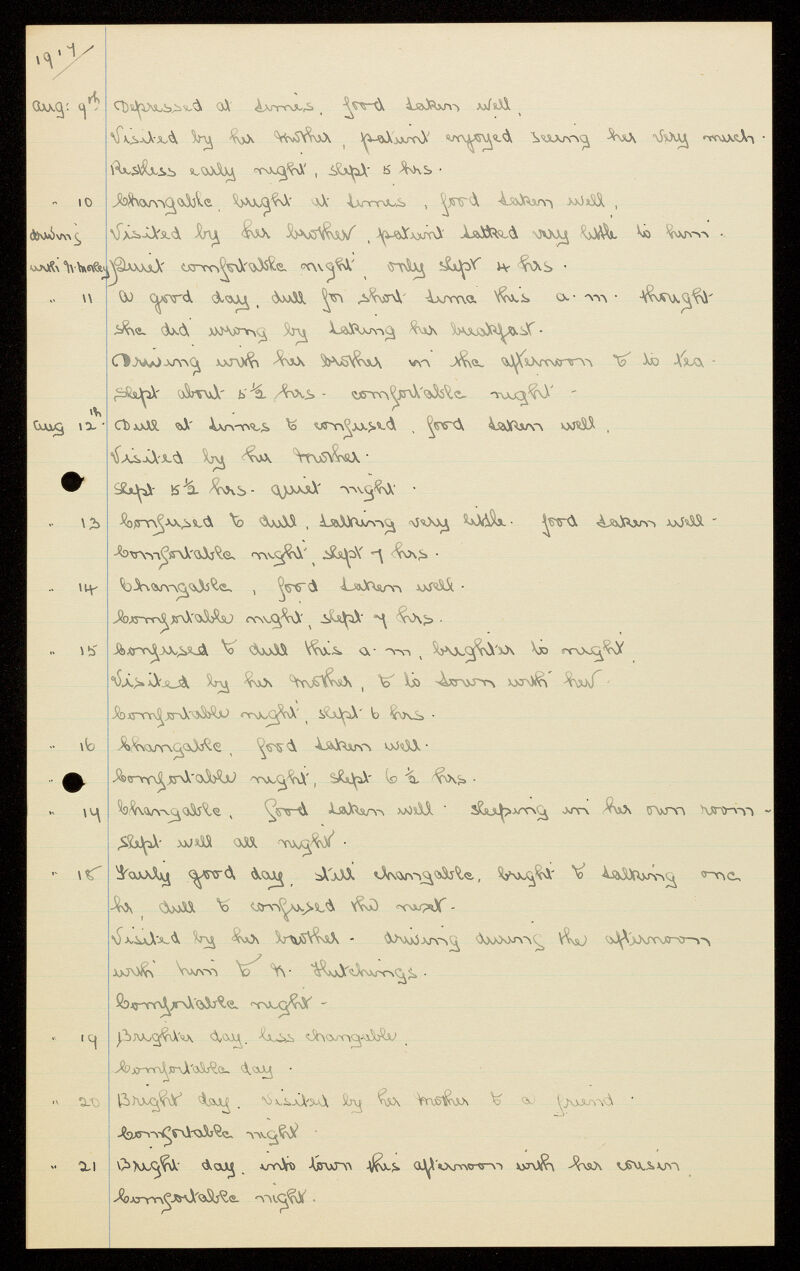 1917
Aug: 9th Depressed at times, food taken well,
Visited by her mother, patient enjoyed seeing her very much.
Restless early night, slept 5 hrs.
" 10 Changable, bright at times, food taken well,
driving Visited by her brother, patient talked very little to him.
with N. Morley Quiet comfortable night, only slept 4 hrs.
" 11 A good day, dull for short time this a.m. thought
she did wrong by taking her breakfast.
Driving with her brother in the afternoon & to tea.
Slept about 5½ hrs. comfortable night -
Aug 12th. Dull at times & confused, food taken well,
Visited by her mother.
Slept 5½ hrs. quiet night.
" 13 Confused & dull, talking very little. food taken well -
Comfortable night, slept 7 hrs.
" 14 Changable, food taken well.
Comfortable night, slept 7 hrs.
" 15 Confused & dull this a.m, brighter to night,
Visited by her mother, & to town with her.
Comfortable night, slept 6 hrs.
" 16 Changable, food taken well.
" Comfortable night, slept 6½ hrs.
" 17 Changable, food taken well. Sleeping in her own room -
Slept well all night.
" 18 Fairly good day, still changable, bright & talking one
hr, dull & confused the next -
Visited by her brother - driving during the afternoon
with him & N. Hutchings.
Comfortable night -
" 19 Brighter day, less changable,
Comfortable day.
" 20 Bright day, visited by her mother & a friend.
Comfortable night
" 21 Bright day, into town this afternoon with her cousin,
Comfortable night.